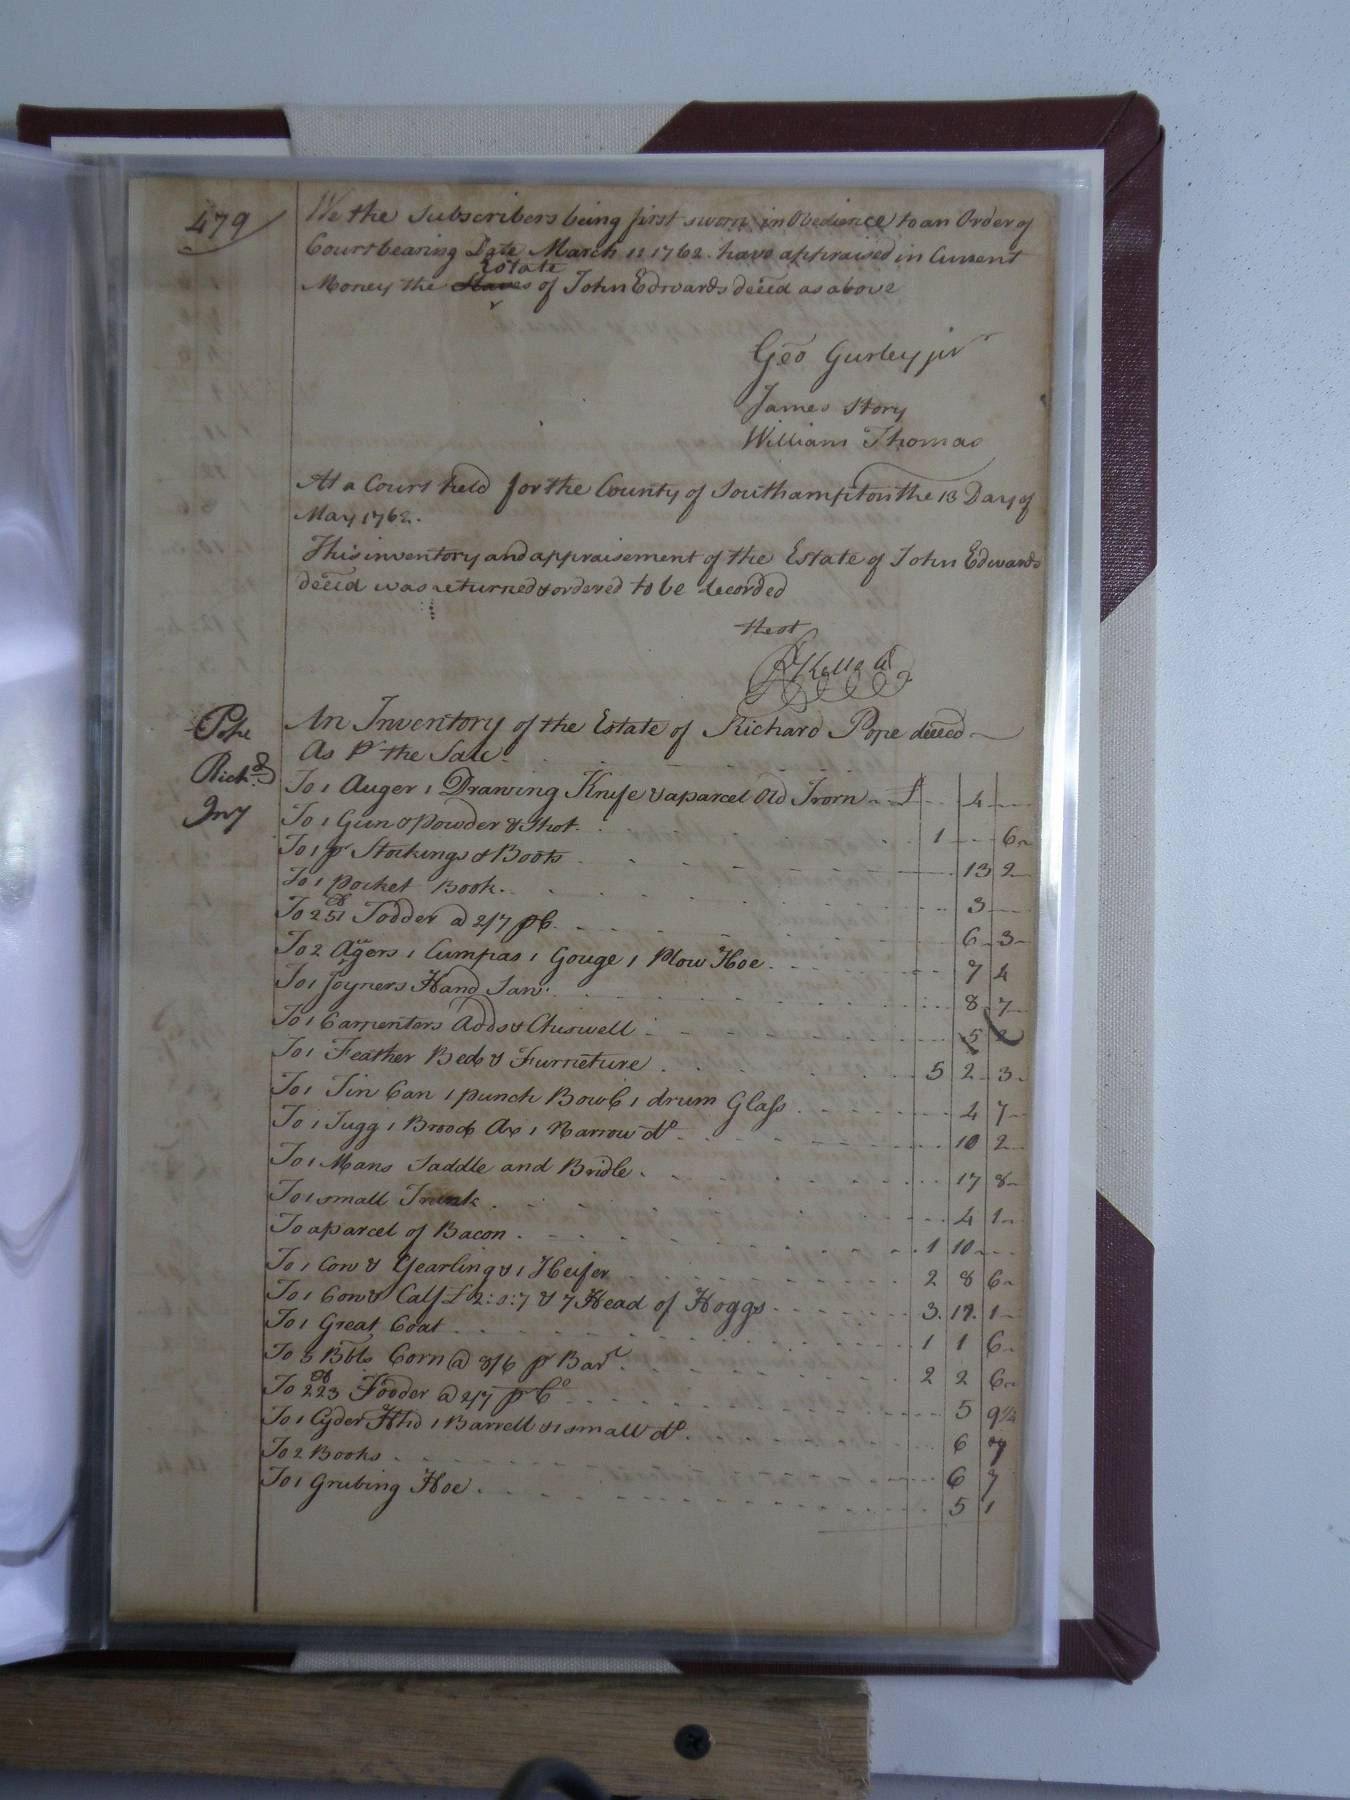 479
We the Subscribers being first sworn in Obedience to an Order of
Court bearing Date March 11 1762 have appraised in Current
Estate
Money the Slaves of John Edwards deced as above
Geo Gurley jur
James Story
William Thomas
At a Court held for the County of Southampton the 13 Day of
May 1762.
This inventory and appraisement of the Estate of John Edwards
deced was returned & ordered to be Recorded
Test
Pope
Richd
Invy
An Inventory of the Estate of Richard Pope deced
As Pr the Sale
To 1 Auger 1 Drawing Knife & a parcel Old Irorn £ 4
To 1 Gun & Powder & Shot 1 6
To 1 pr Stockings & Boots 13 2
To 1 pocket Book 3
To 251 Fodder @ 2/7 p C 6 3
To 2 Agers 1 Cumpas 1 Gouge 1 Plow Hoe 7 4
To 1 Joyners Hand Saw 8 7
To 1 Carpenters Adds & Chiswell 5 2
To 1 Feather Bed & Furnieture 5 2 3
To 1 Tin Can 1 punch Bowl 1 dram Glass 4 7
To 1 Jugg 1 Brood Ax 1 Narrow do 10 2
To 1 Mans Saddle and Bridle 17 8
To 1 small Trunk 4 1
To a parcel of Bacon 1 10
To 1 Cow & Yearling & 1 Heifer 2 8 6
To 1 Cow & Calf £ 2:0:7 & 7 Head of Hoggs 3. 17. 1
To 1 Great Coat 1 1 6
To 5 Bbls Corn @ 8/6 p Barl 2 2 6
To 223 Fodder @ 2/7 p Co 5 9¼
To 1 Cyder Hhd 1 Barrell & 1 small do 6 7
To 2 Books 6 7
To 1 Grubing Hoe 5 1